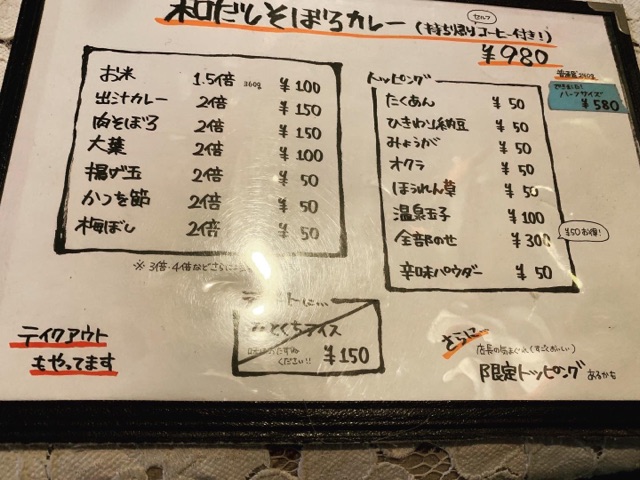 和だしそぼろカレー (持ち帰りコーヒー付き!)
セルフ
¥980
お米 1.5倍 360g ¥100
出汁カレー 2倍 ¥150
肉そぼろ 2倍 ¥150
大葉 2倍 ¥100
揚げ玉 2倍 ¥50
かつを節 2倍 ¥50
梅ぼし 2倍 ¥50
※3倍・4倍などさらに
トッピング
たくあん ¥50
ひきわり納豆 ¥50
みょうが ¥50
オクラ ¥50
ほうれん草 ¥50
温泉玉子 ¥100
全部のせ ¥300
¥50お得!
辛味パウダー ¥50
ハーフサイズ
¥580
ひとくちアイス
ください!!
¥150
テイクアウト
もやってます
さらに
店長の気まぐれ(すごくおいしい)
限定トッピング あるかも